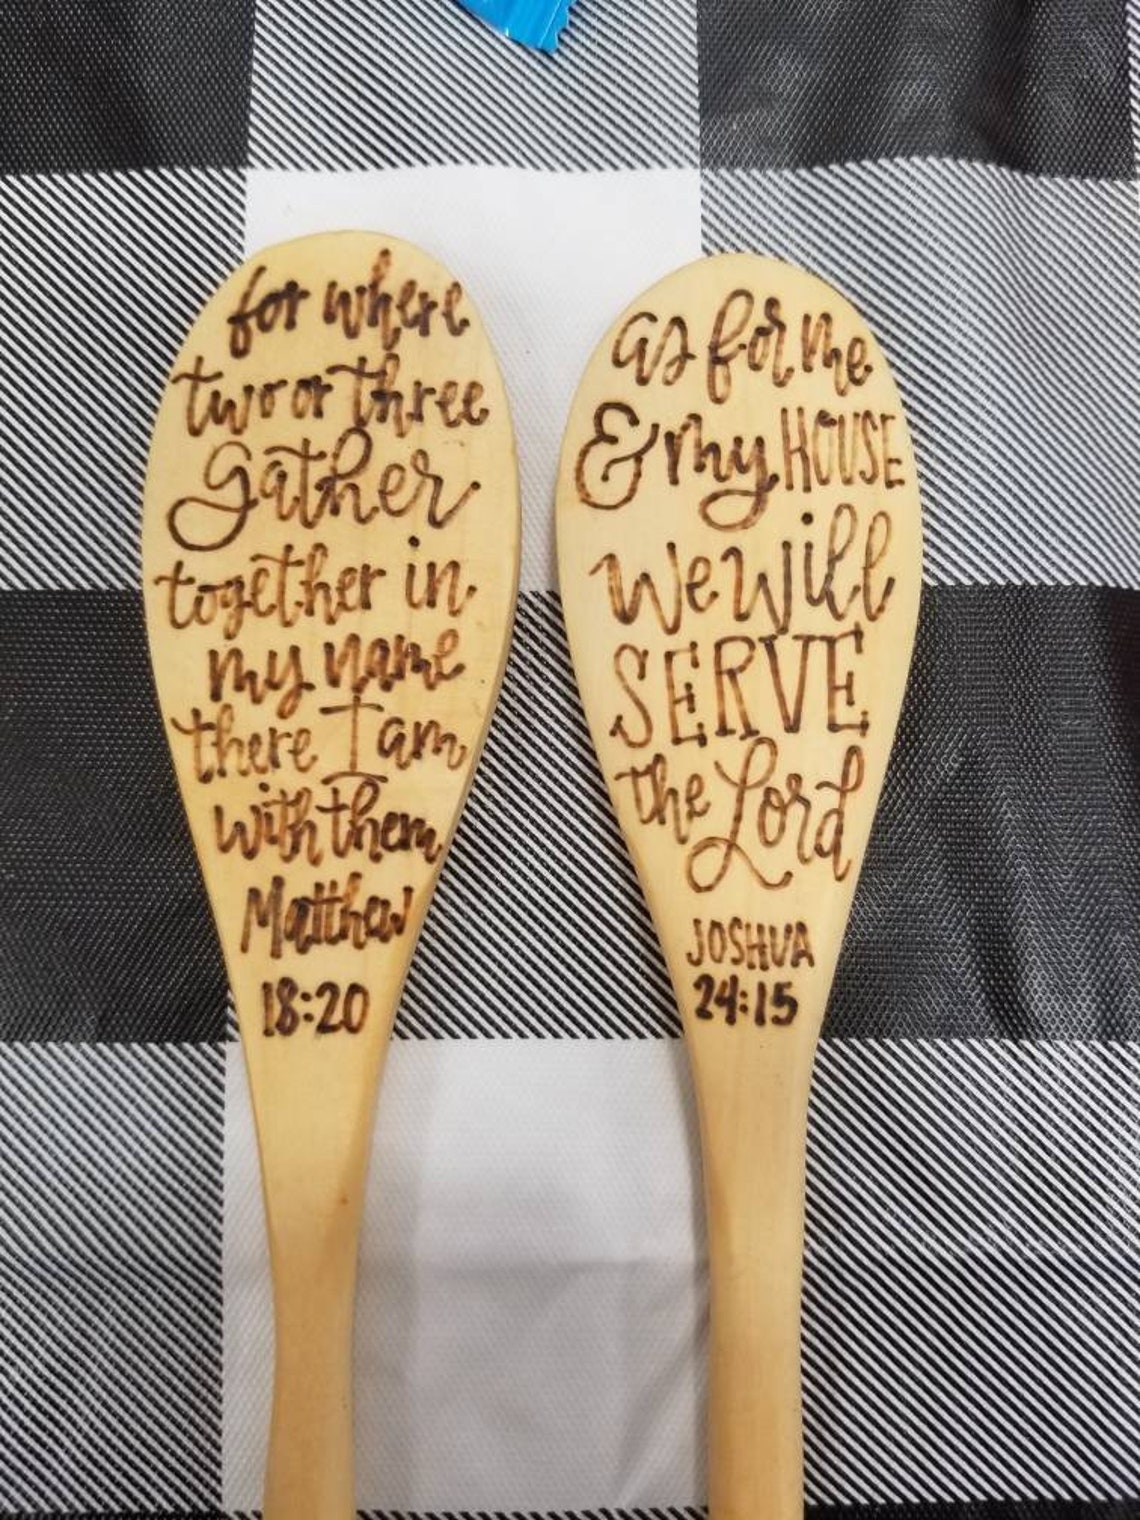 for where
two or three
gather
together in
my name
there I am
with them
Matthew
18:20
as for me
& my HOUSE
we will
SERVE
the Lord
JOSHUA
24:15